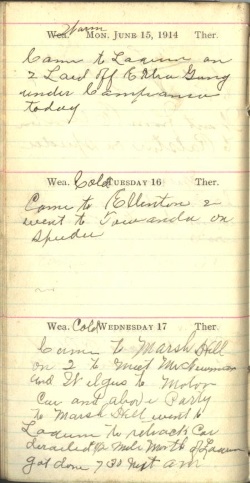 Wea. Warm MON. JUNE 15, 1914 Ther.
Came to Laquin on
2 Laid off Extra Gang
under Campanaro
today
Wea. Cold TUESDAY 16 Ther.
Came to Ellenton &
went to Towanda on
Speeder
Wea. Cold WEDNESDAY 17 Ther.
Came to Marsh Hill
on 2 to meet Mr
and Wilgus to Motor
Car and above Party
to Marsh Hill went to
Laquin to rerack Car
derailed 2 Mile North of Laquin
got done 7 30 next am